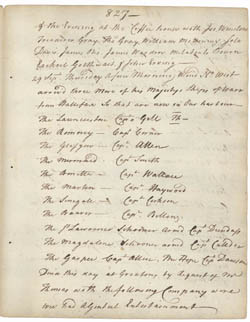 827
of the Evening at the Coffee house with Jos Winslow
Treasurer Gray, The Gray William McMurray, Jolo
James the James Warren
& John Erving
29 Sept. Thursday a fair Morning Wind No West
arived three More of his Majestys Ships of Warr
from Hallifax So that are now in Our harbour
The Launceston Capt Gell
The Romney Capt Corner
The Capt Allen
The Mermaid Capt Smith
The Capt Wallace
The Martin Capt Hayward
The Senegall Capt Cookson
The Beaver Capt Bellew
The St Lawrence Schooner armd Capt Dundass
The Magdalene Schooner armd Capt
The Gaspee Capt Allen, Mr Hope Capt Dawson
Dind this day at by Request of Mr
Thomas with the following Company were
we had a Genteel Entertainment